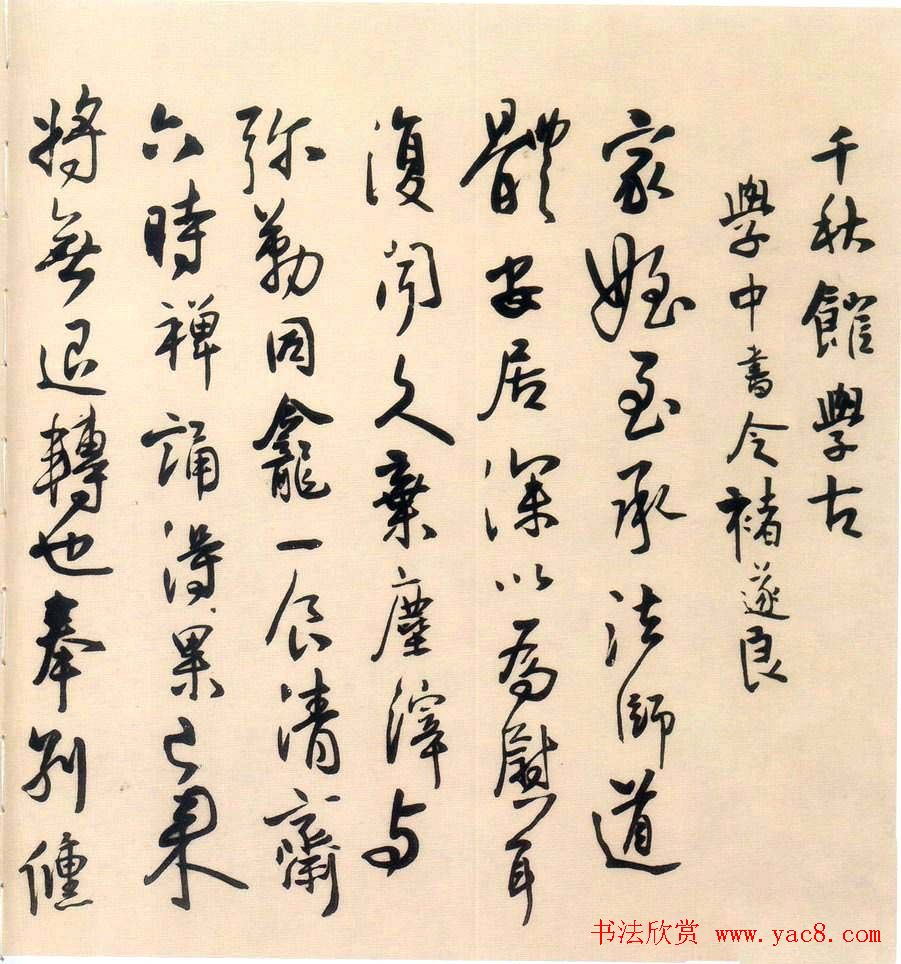 千秋館學古
學中書令褚遂良
家姪至承法師道
體安居深以為慰耳
復聞久棄塵滓与
弥勒同龕一食清齋
六時禪誦得果已来
將無退轉也奉別儵
书法欣赏 www.yac8.com